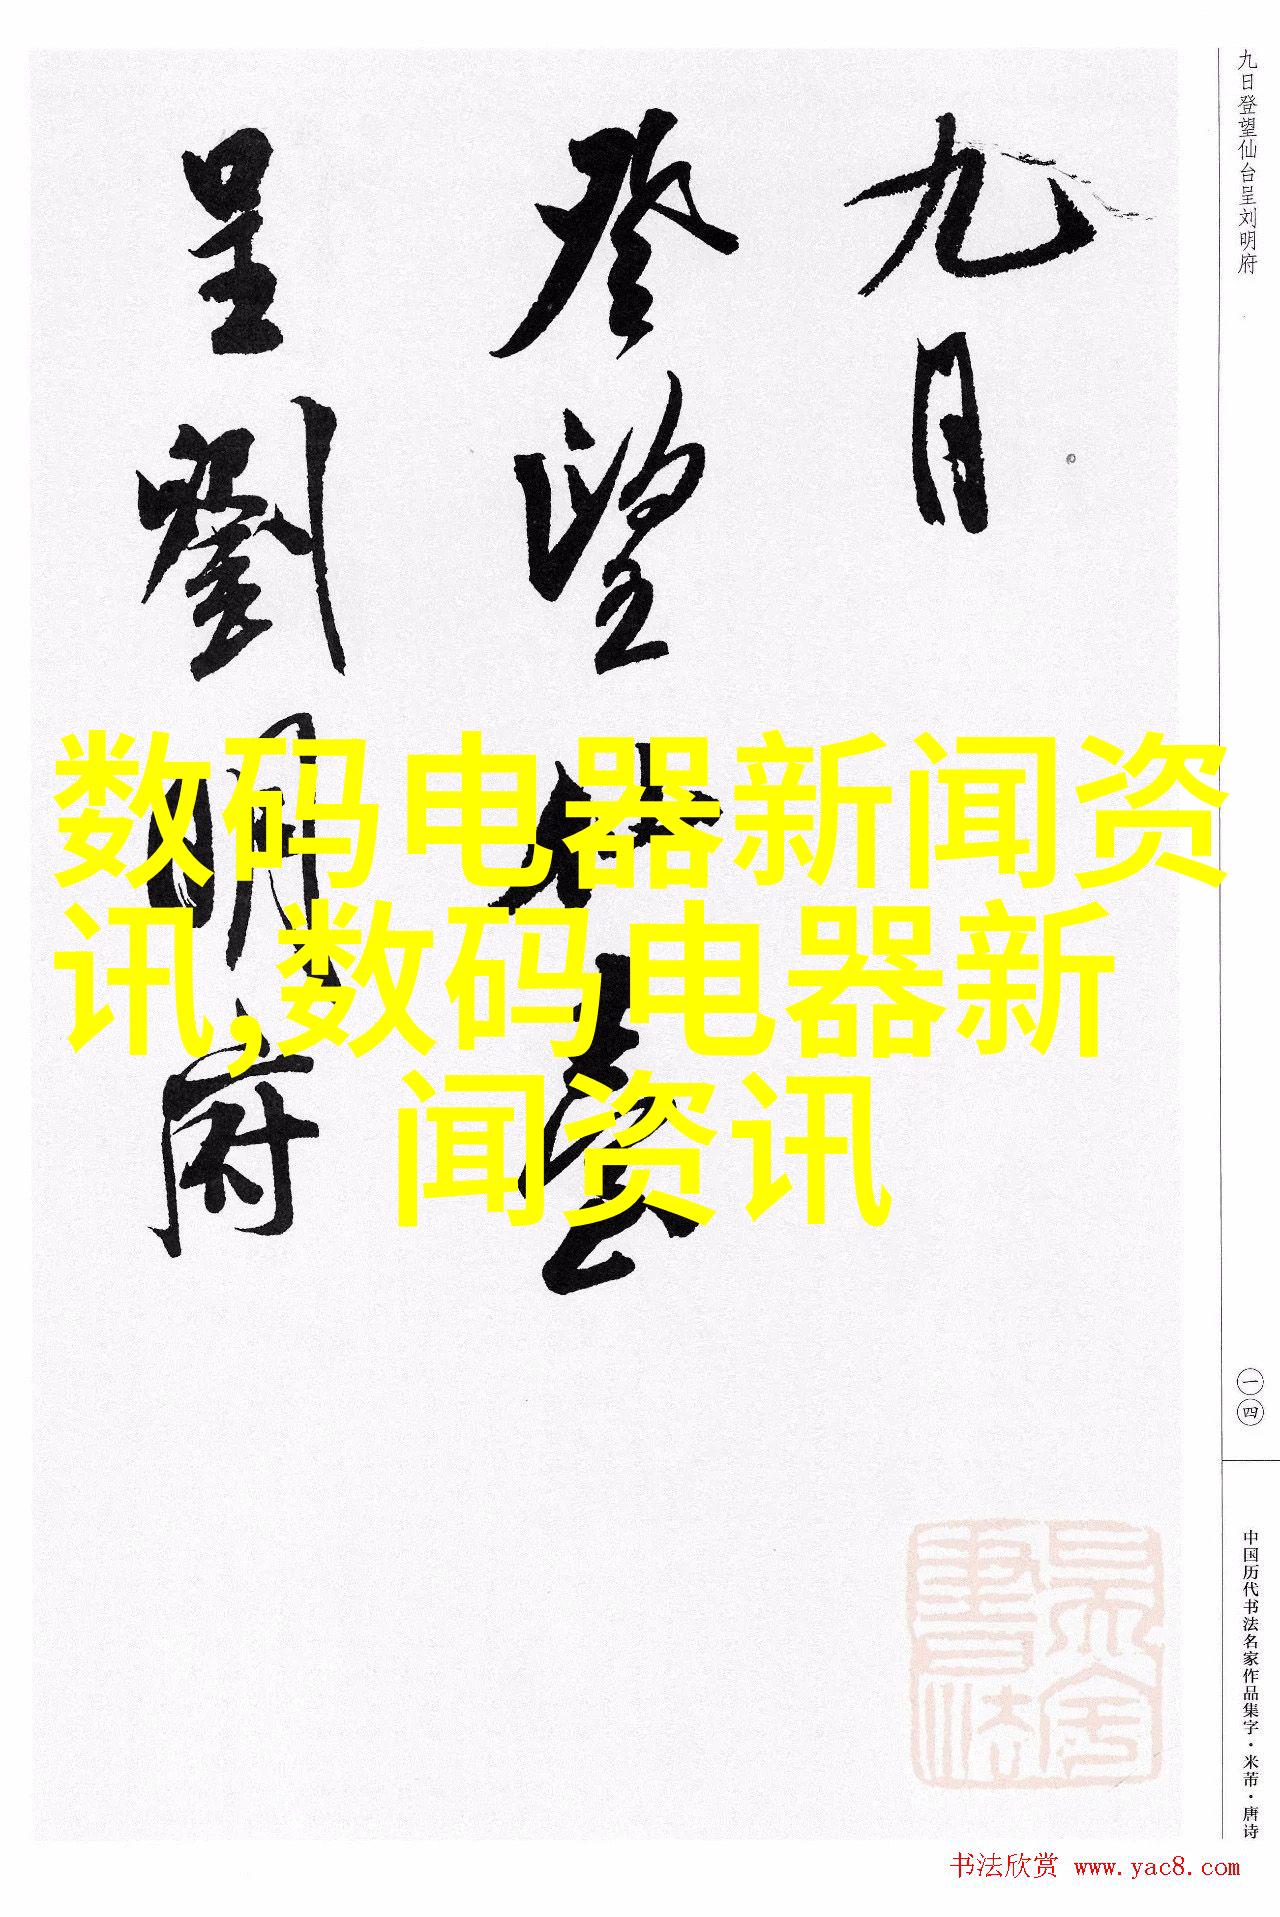 九日
登望仙臺
呈劉明府
九日登望仙台呈刘明府
数码电器新闻资
讯,数码电器新
闻资讯
一四
中国历代书法名家作品集字·米芾·唐诗
书法欣赏 www.yac8.com